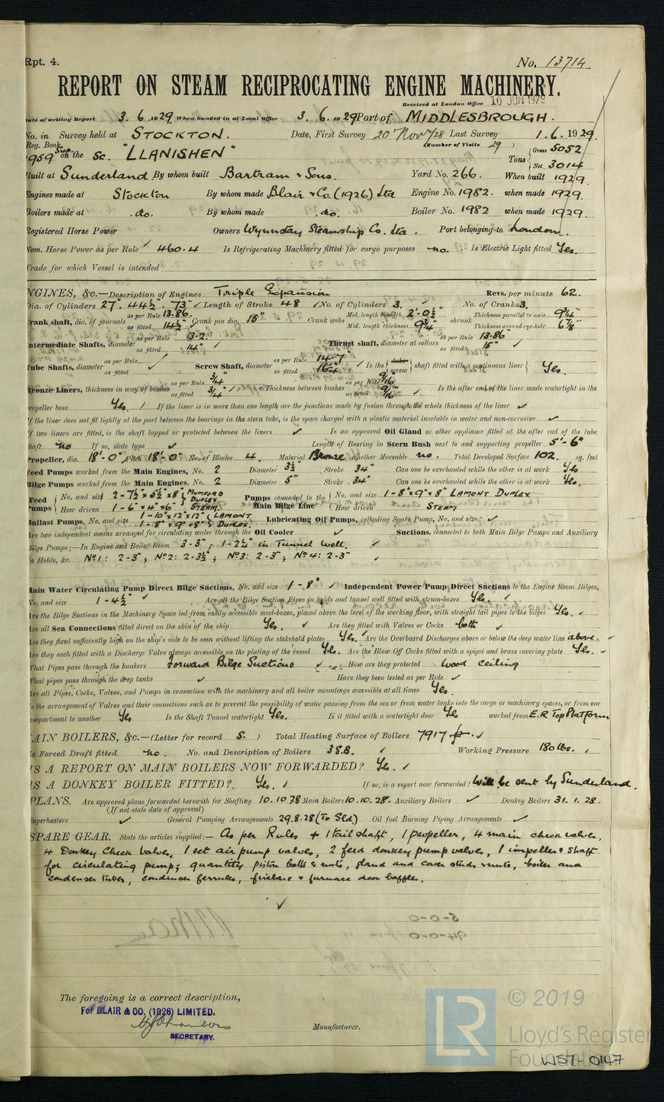 Rpt. 4.
No. 13714
REPORT ON STEAM RECIPROCATING ENGINE MACHINERY.
Received at London Office 10 JUN 1929
Date of writing Report 3.6.1929 When handed in at Local Office 3.6.1929 Port of MIDDLESBROUGH.
No. in Survey held at STOCKTON. Date, First Survey 20 Nov 28 Last Survey 1.6.1929.
Reg. Book. (Number of Visits 29)
on the Sc. "LLANISHEN" Tons Gross 5052 Net 3014
Built at Sunderland By whom built Bartram & Sons. Yard No. 266. When built 1929.
Engines made at Stockton By whom made Blair & Co. (1926) Ltd Engine No. 1982. when made 1929.
Boilers made at do. By whom made do. Boiler No. 1982 when made 1929.
Registered Horse Power Owners Wynnstay Steamship Co. Ltd. Port belonging to London.
Nom. Horse Power as per Rule 460.4 Is Refrigerating Machinery fitted for cargo purposes no. Is Electric Light fitted Yes.
Trade for which Vessel is intended
ENGINES, &c.—Description of Engines Triple Expansion Revs. per minute 62.
Dia. of Cylinders 27" 44½" 73" Length of Stroke 48 No. of Cylinders 3. No. of Cranks 3.
Crank shaft, dia. of journals as per Rule 13.86 as fitted 14½" Crank pin dia. 15" Crank webs Mid. length breadth 2'-0½" Mid. length thickness 9¾" shrunk Thickness parallel to axis 9¼" Thickness around eye-hole 6⅞"
Intermediate Shafts, diameter as per Rule 13.2 as fitted 14" Thrust shaft, diameter at collars as per Rule 13.86 as fitted 15"
Tube Shafts, diameter as per Rule as fitted Screw Shaft, diameter as per Rule 14.7 as fitted 16¼ Is the screw shaft fitted with a continuous liner Yes.
Bronze Liners, thickness in way of bushes as per Rule ¾" as fitted ¾" Thickness between bushes as per Rule 9/16 as fitted 9/16 Is the after end of the liner made watertight in the
propeller boss Yes. If the liner is in more than one length are the junctions made by fusion through the whole thickness of the liner
If the liner does not fit tightly at the part between the bearings in the stern tube, is the space charged with a plastic material insoluble in water and non-corrosive
If two liners are fitted, is the shaft lapped or protected between the liners Is an approved Oil Gland or other appliance fitted at the after end of the tube
shaft no If so, state type Length of Bearing in Stern Bush next to and supporting propeller 5'-6"
Propeller, dia. 18'-0" Pitch 18'-0" No. of Blades 4. Material Bronze whether Moveable no. Total Developed Surface 102. sq. feet
Feed Pumps worked from the Main Engines, No. 2 Diameter 3½ Stroke 34" Can one be overhauled while the other is at work Yes
Bilge Pumps worked from the Main Engines, No. 2 Diameter 5" Stroke 34" Can one be overhauled while the other is at work Yes.
Feed Pumps No. and size 2-7½"×5½"×8" MUMFORD DUPLEX Pumps connected to the Main Bilge Line No. and size 1-8"×9"×8" LAMONT DUPLEX
How driven 1-6"×4"×6" STEAM. How driven STEAM
Ballast Pumps, No. and size 1-10"×12"×12" 1-8"×9"×8" LAMONT DUPLEX. Lubricating Oil Pumps, including Spare Pump, No. and size
Are two independent means arranged for circulating water through the Oil Cooler Suctions, connected to both Main Bilge Pumps and Auxiliary
Bilge Pumps;—In Engine and Boiler Room 3-3": 1-2½" in Tunnel Well,
In Holds, &c. No1: 2-3", No2: 2-3½", No3: 2-3", No4: 2-3"
Main Water Circulating Pump Direct Bilge Suctions, No. and size 1-8" Independent Power Pump Direct Suctions to the Engine Room Bilges,
No. and size 1-4½" Are all the Bilge Suction Pipes in holds and tunnel well fitted with strum-boxes Yes.
Are the Bilge Suctions in the Machinery Space led from easily accessible mud-boxes, placed above the level of the working floor, with straight tail pipes to the bilges Yes.
Are all Sea Connections fitted direct on the skin of the ship Yes. Are they fitted with Valves or Cocks both
Are they fixed sufficiently high on the ship's side to be seen without lifting the stokehold plates Yes. Are the Overboard Discharges above or below the deep water line above.
Are they each fitted with a Discharge Valve always accessible on the plating of the vessel Yes. Are the Blow Off Cocks fitted with a spigot and brass covering plate Yes.
What Pipes pass through the bunkers Forward Bilge Suctions How are they protected Wood ceiling
What pipes pass through the deep tanks Have they been tested as per Rule
Are all Pipes, Cocks, Valves, and Pumps in connection with the machinery and all boiler mountings accessible at all times Yes.
Is the arrangement of Valves and their connections such as to prevent the possibility of water passing from the sea or from water tanks into the cargo or machinery spaces, or from one
compartment to another Yes Is the Shaft Tunnel watertight Yes. Is it fitted with a watertight door Yes worked from E.R Top Platform
MAIN BOILERS, &c.—(Letter for record S.) Total Heating Surface of Boilers 7917 ft.
Is Forced Draft fitted no. No. and Description of Boilers 3 S.B. Working Pressure 180 lbs.
IS A REPORT ON MAIN BOILERS NOW FORWARDED? Yes.
IS A DONKEY BOILER FITTED? Yes. If so, is a report now forwarded? Will be sent by Sunderland.
PLANS. Are approved plans forwarded herewith for Shafting 10.10.28 Main Boilers 10.10.28. Auxiliary Boilers Donkey Boilers 31.1.28.
(If not state date of approval)
Superheaters General Pumping Arrangements 29.8.28 (To Sld) Oil fuel Burning Piping Arrangements
SPARE GEAR. State the articles supplied:— As per Rules + 1 tail shaft, 1 propeller, 4 main check valves,
4 Donkey Check valves, 1 set air pump valves, 2 feed donkey pump valves, 1 impeller & shaft
for circulating pump; quantity piston bolts & nuts, gland and cover studs & nuts, boiler and
condenser tubes, condenser ferrules, firebars & furnace door baffle.
The foregoing is a correct description,
For BLAIR & CO. (1926) LIMITED.
SECRETARY.
Manufacturer.
LR
© 2019
Lloyd's Register
Foundation
W57-0147